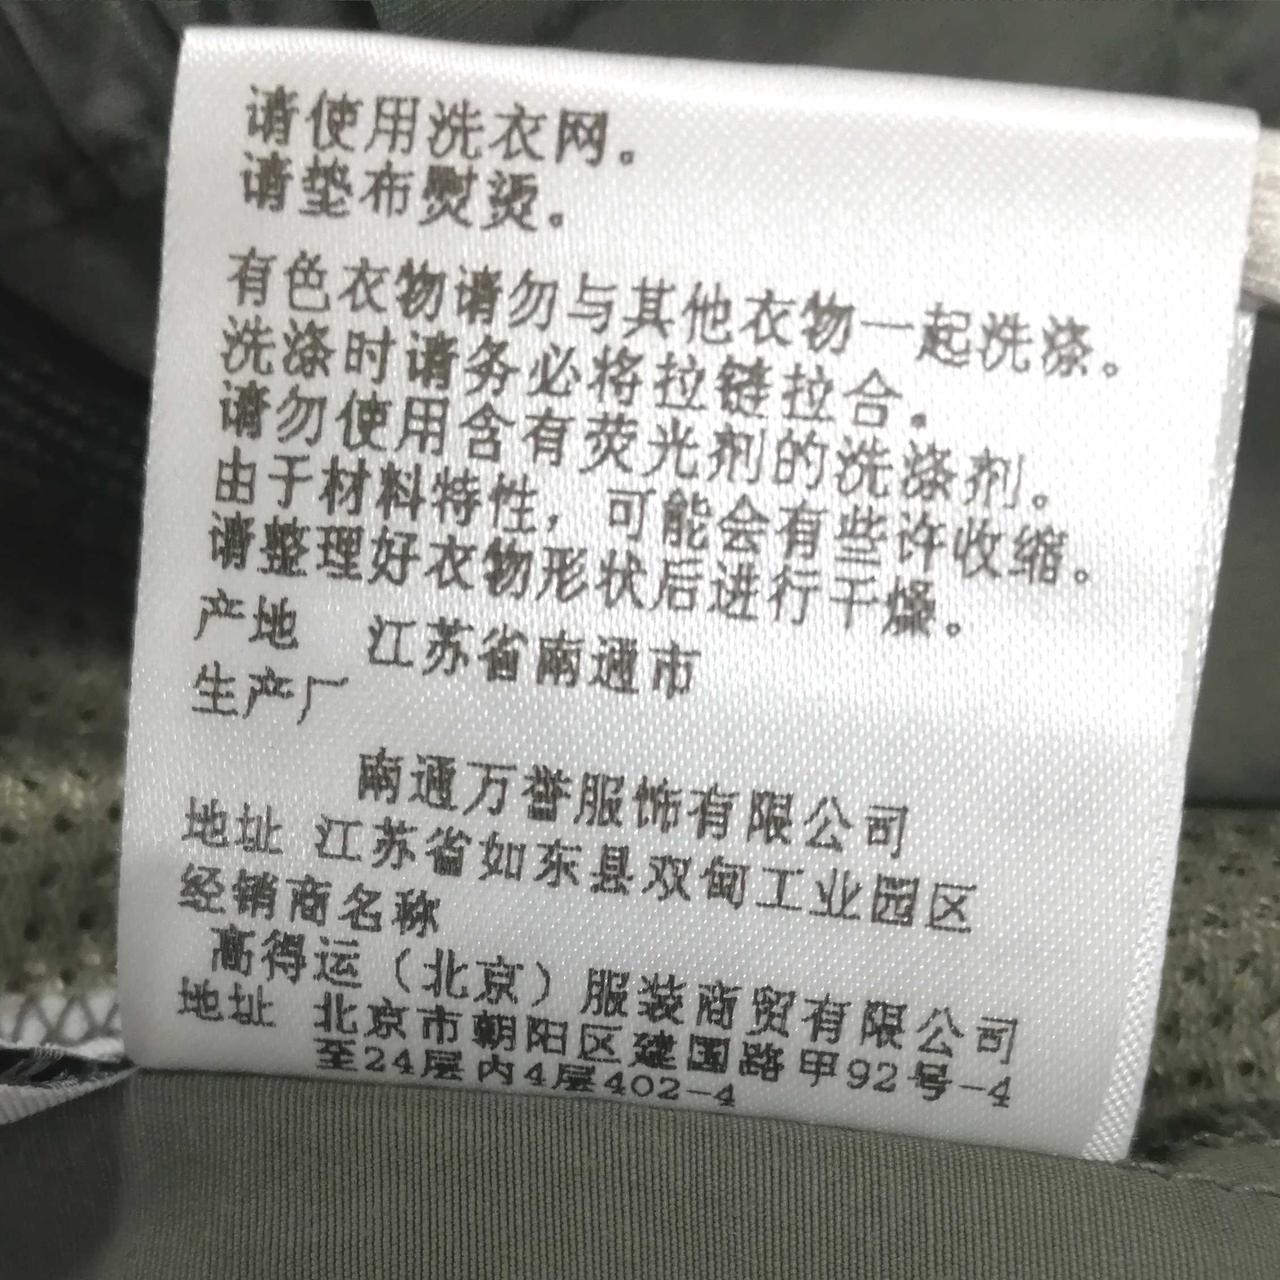 请使用洗衣网。
请垫布熨烫。
有色衣物请勿与其他衣物一起洗涤。
洗涤时请务必将拉链拉合。
请勿使用含有荧光剂的洗涤剂。
由于材料特性，可能会有些许收缩。
请整理好衣物形状后进行干燥。
产地 江苏省南通市
生产厂
南通万誉服饰有限公司
地址 江苏省如东县双甸工业园区
经销商名称
高得运（北京）服装商贸有限公司
地址 北京市朝阳区建国路甲92号-4
至24层内4层402-4